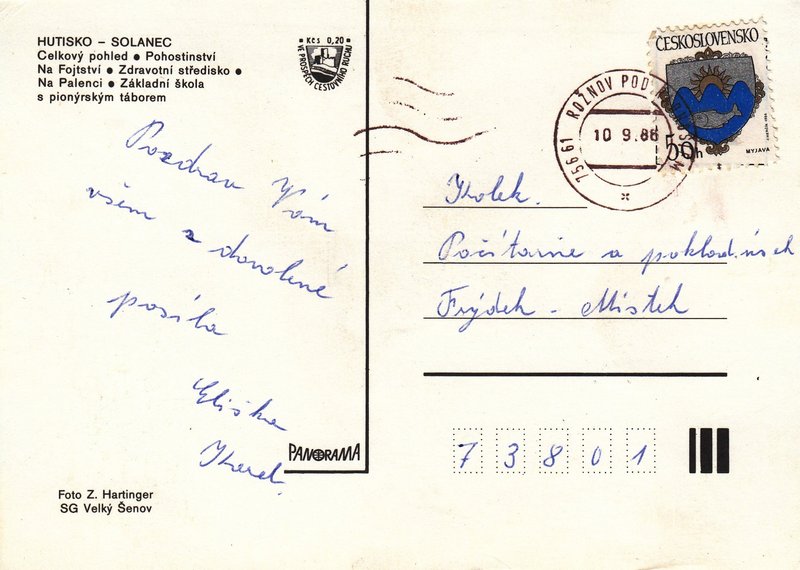 HUTISKO – SOLANEC
Celkový pohled ● Pohostinství
Na Fojtství ● Zdravotní středisko ●
Na Palenci ● Základní škola
s pionýrským táborem
Kčs 0,20
VE PROSPĚCH CESTOVNÍHO RUCHU
ČESKOSLOVENSKO
50h
MYJAVA
756 61 ROŽNOV POD RADHOŠTĚM
10.9.86
Pozdrav Vám
všem z dovolené
posíla
Eliška
Karel.
Kolek.
Počítarně a pokladnách
Frýdek - Místek
73801
PANORAMA
Foto Z. Hartinger
SG Velký Šenov